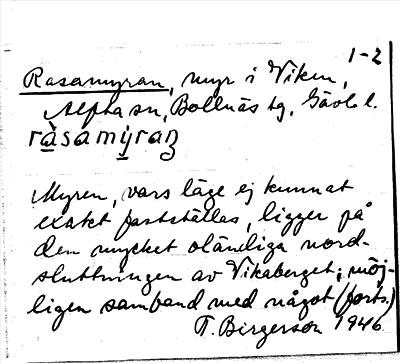 1-2
Rasamyran, myr i Viken,
Alfta sn, Bollnäs tg, Gävlb l.
ràsamy̱raṉ
Myren, vars läge ej kunnat
exakt fastställas, ligger på
den mycket oländiga nord-
sluttningen av Vikaberget; möj-
ligen samband med något (forts.)
T. Birgerson 1946